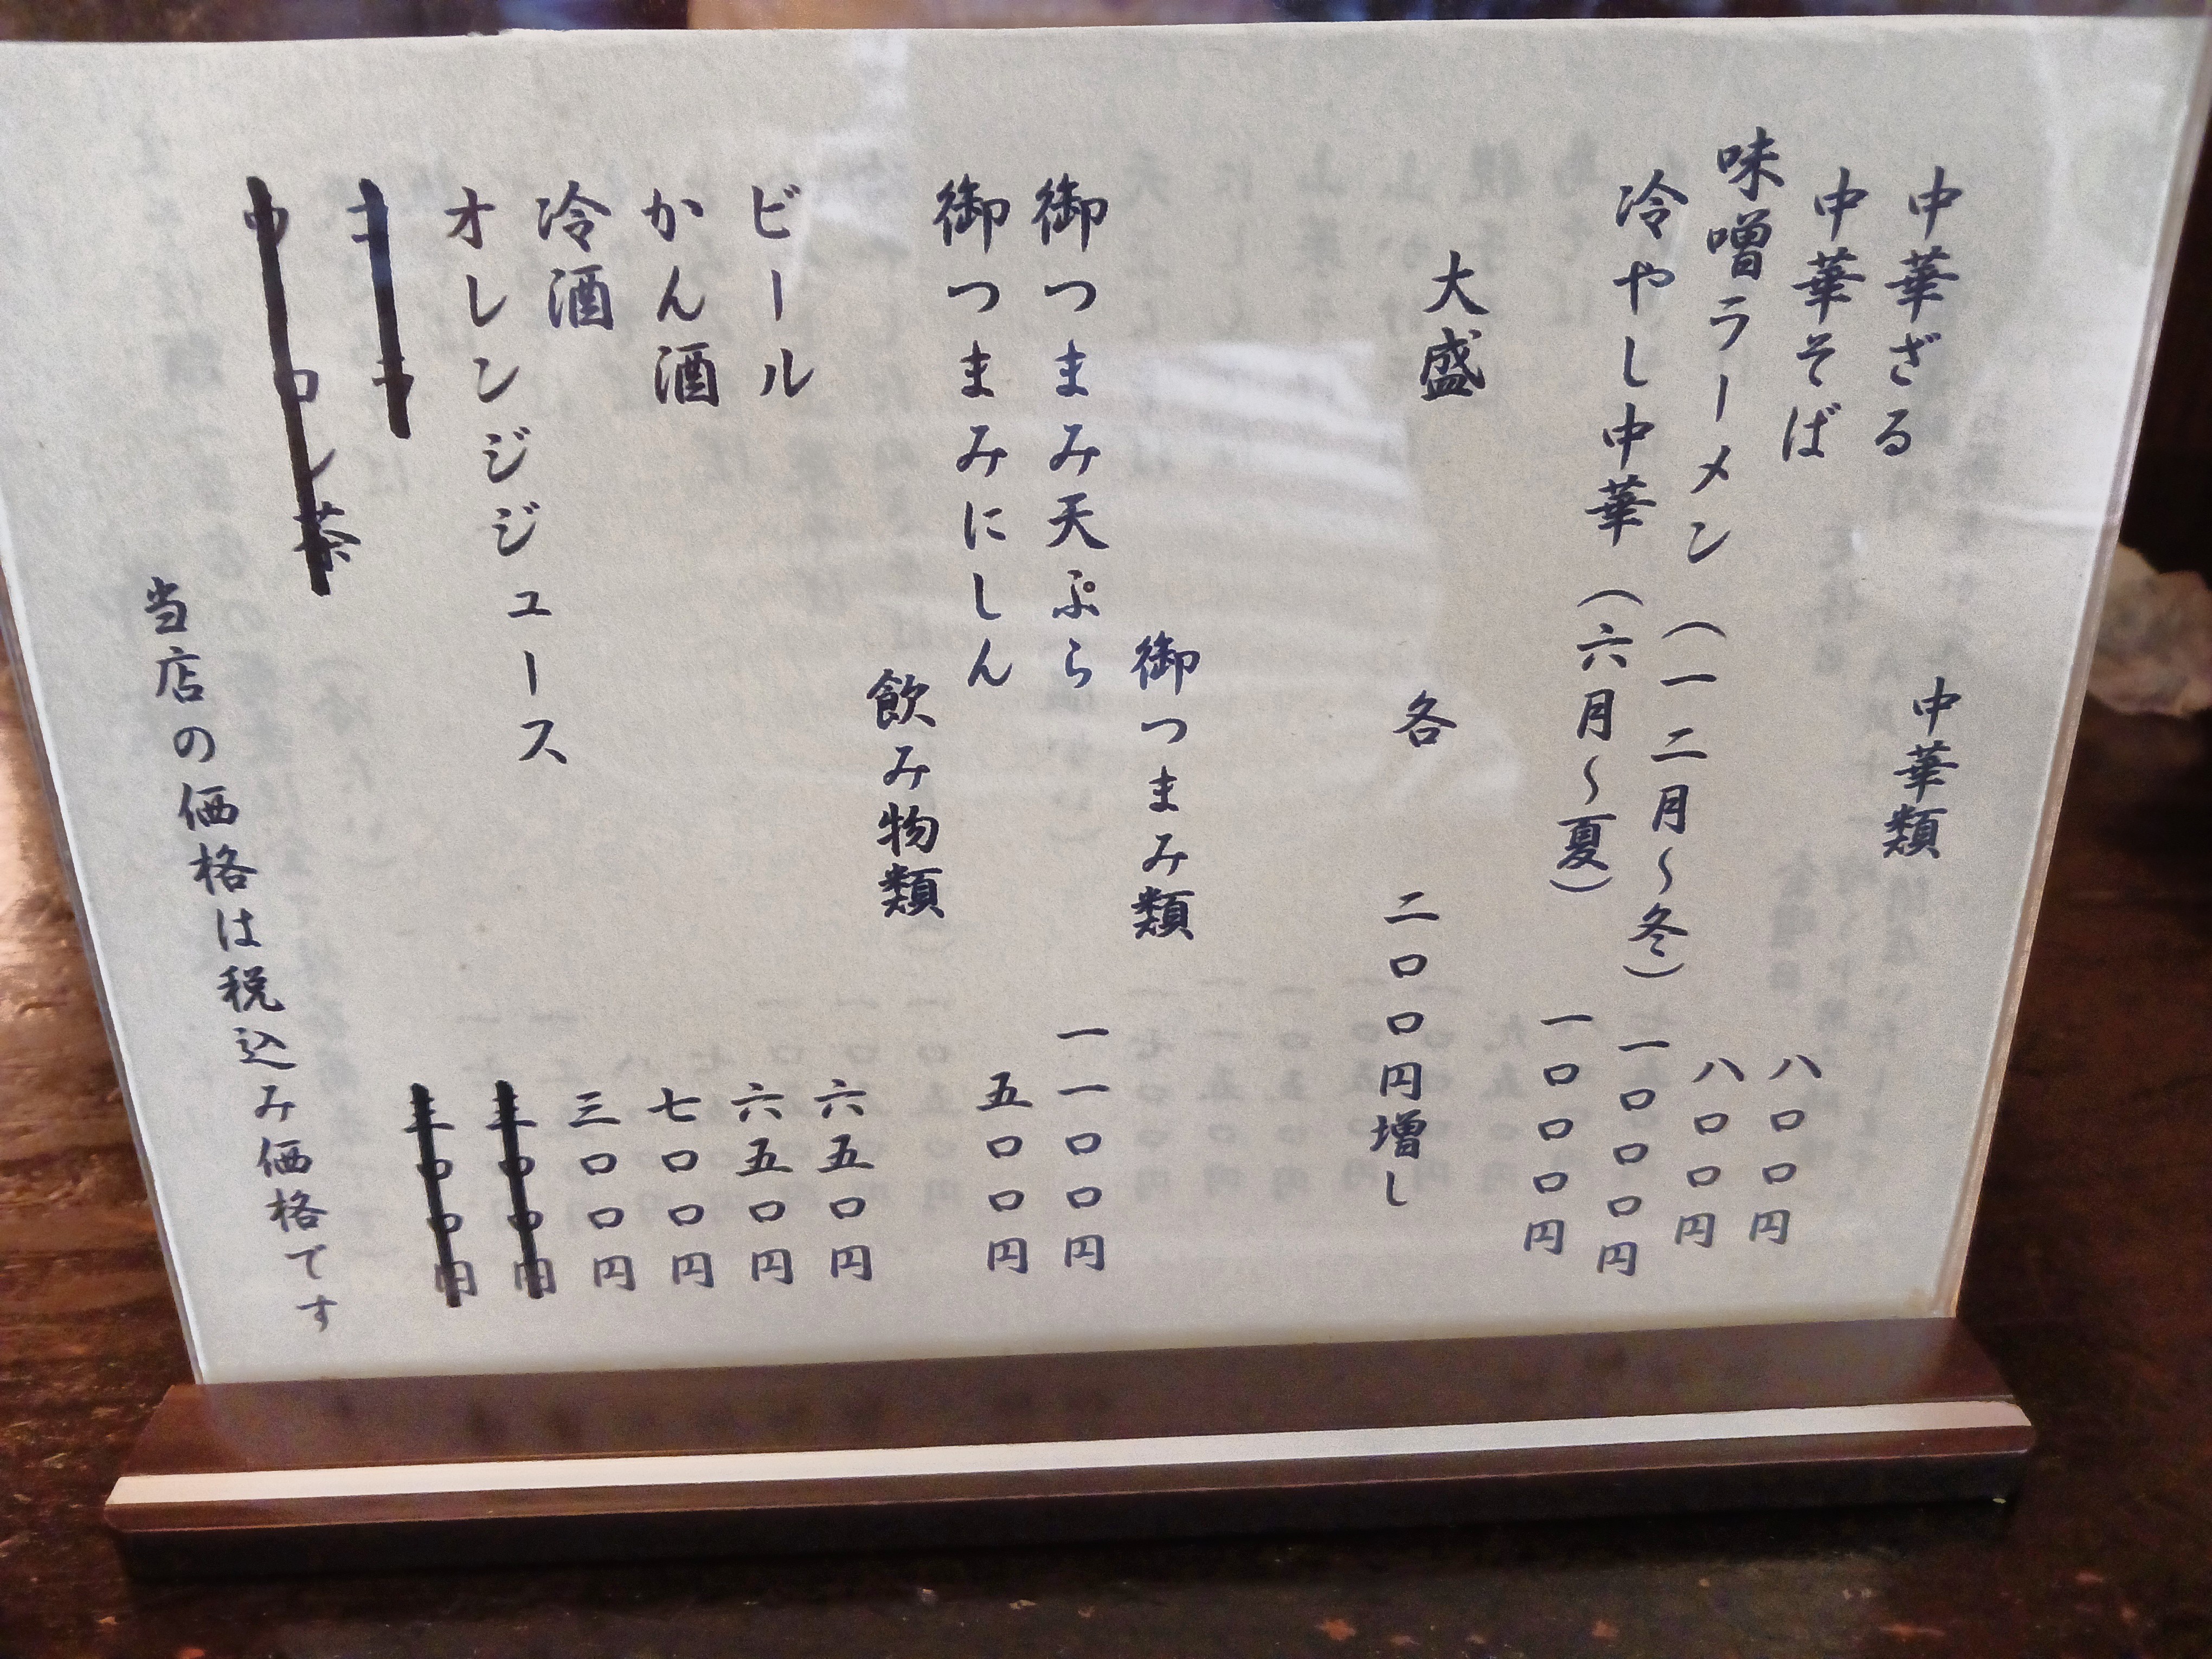 中華類
中華ざる 八〇〇円
中華そば 八〇〇円
味噌ラーメン（一二月～冬） 一〇〇〇円
冷やし中華（六月～夏） 一〇〇〇円
大盛 各 二〇〇円増し
御つまみ類
御つまみ天ぷら 一一〇〇円
御つまみにしん 五〇〇円
飲み物類
ビール 六五〇円
かん酒 六五〇円
冷酒 七〇〇円
オレンジジュース 三〇〇円
当店の価格は税込み価格です